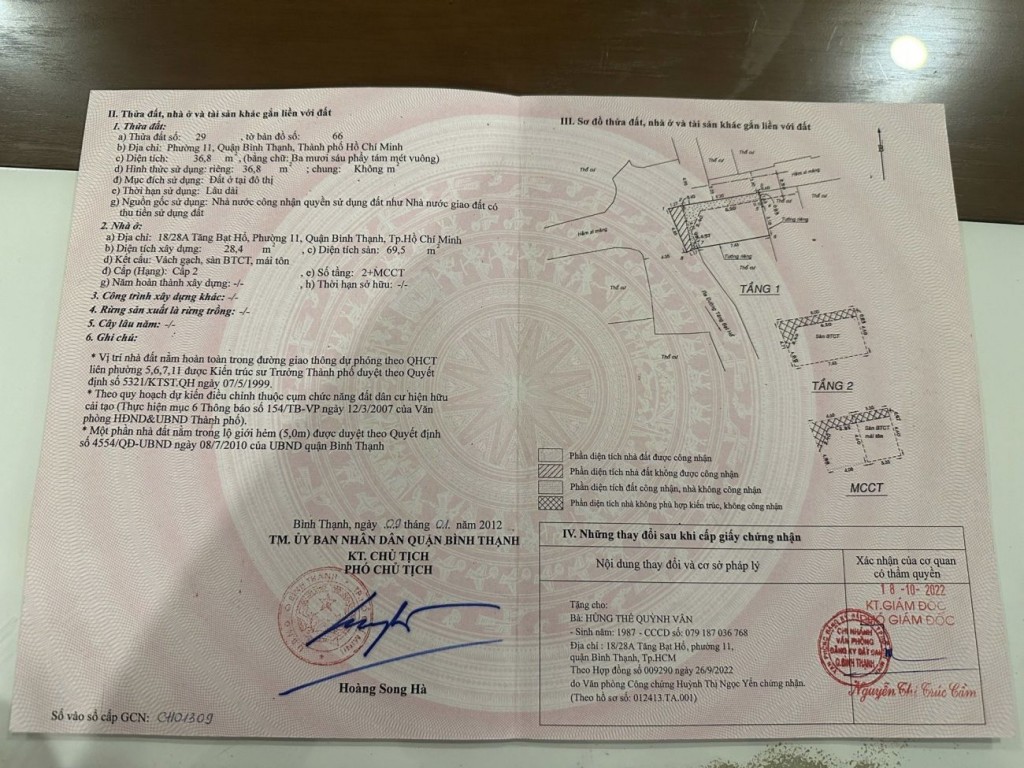 II. Thửa đất, nhà ở và tài sản khác gắn liền với đất
1. Thửa đất:
a) Thửa đất số: 29 , tờ bản đồ số: 66
b) Địa chỉ: Phường 11, Quận Bình Thạnh, Thành phố Hồ Chí Minh
c) Diện tích: 36,8 m², (bằng chữ: Ba mươi sáu phẩy tám mét vuông)
d) Hình thức sử dụng: riêng: 36,8 m² ; chung: Không m²
đ) Mục đích sử dụng: Đất ở tại đô thị
e) Thời hạn sử dụng: Lâu dài
g) Nguồn gốc sử dụng: Nhà nước công nhận quyền sử dụng đất như Nhà nước giao đất có
thu tiền sử dụng đất
2. Nhà ở:
a) Địa chỉ: 18/28A Tăng Bạt Hổ, Phường 11, Quận Bình Thạnh, Tp.Hồ Chí Minh
b) Diện tích xây dựng: 28,4 m² , c) Diện tích sàn: 69,5 m²
d) Kết cấu: Vách gạch, sàn BTCT, mái tôn
đ) Cấp (Hạng): Cấp 2 , e) Số tầng: 2+MCCT
g) Năm hoàn thành xây dựng: -/- , h) Thời hạn sở hữu: -/-
3. Công trình xây dựng khác: -/-
4. Rừng sản xuất là rừng trồng: -/-
5. Cây lâu năm: -/-
6. Ghi chú:
* Vị trí nhà đất nằm hoàn toàn trong đường giao thông dự phóng theo QHCT
liên phường 5,6,7,11 được Kiến trúc sư Trưởng Thành phố duyệt theo Quyết
định số 5321/KTST.QH ngày 07/5/1999.
* Theo quy hoạch dự kiến điều chỉnh thuộc cụm chức năng đất dân cư hiện hữu
cải tạo (Thực hiện mục 6 Thông báo số 154/TB-VP ngày 12/3/2007 của Văn
phòng HĐND&UBND Thành phố).
* Một phần nhà đất nằm trong lộ giới hẻm (5,0m) được duyệt theo Quyết định
số 4554/QĐ-UBND ngày 08/7/2010 của UBND quận Bình Thạnh
Bình Thạnh, ngày 09 tháng 01 năm 2012
TM. ỦY BAN NHÂN DÂN QUẬN BÌNH THẠNH
KT. CHỦ TỊCH
PHÓ CHỦ TỊCH
Hoàng Song Hà
Số vào sổ cấp GCN: CH01309
III. Sơ đồ thửa đất, nhà ở và tài sản khác gắn liền với đất
Thổ cư
Thổ cư
Thổ cư
Hẻm xi măng
Thổ cư
Hẻm xi măng
Tường riêng
Tường riêng
Thổ cư
Thổ cư
Thổ cư
TẦNG 1
Sàn BTCT
TẦNG 2
Sàn BTCT
mái tôn
MCCT
Phần diện tích nhà đất được công nhận
Phần diện tích nhà đất không được công nhận
Phần diện tích đất công nhận, nhà không công nhận
Phần diện tích nhà không phù hợp kiến trúc, không công nhận
IV. Những thay đổi sau khi cấp giấy chứng nhận
Nội dung thay đổi và cơ sở pháp lý
Xác nhận của cơ quan
có thẩm quyền
Tặng cho:
Bà: HỨNG THỂ QUỲNH VÂN
- Sinh năm: 1987 - CCCD số: 079 187 036 768
Địa chỉ : 18/28A Tăng Bạt Hổ, phường 11,
quận Bình Thạnh, Tp.HCM
Theo Hợp đồng số 009290 ngày 26/9/2022
do Văn phòng Công chứng Huỳnh Thị Ngọc Yến chứng nhận.
(Theo hồ sơ số: 012413.TA.001)
18 -10- 2022
KT.GIÁM ĐỐC
PHÓ GIÁM ĐỐC
CHI NHÁNH
VĂN PHÒNG
ĐĂNG KÝ ĐẤT ĐAI
Q.BÌNH THẠNH
Nguyễn Thị Trúc Cầm